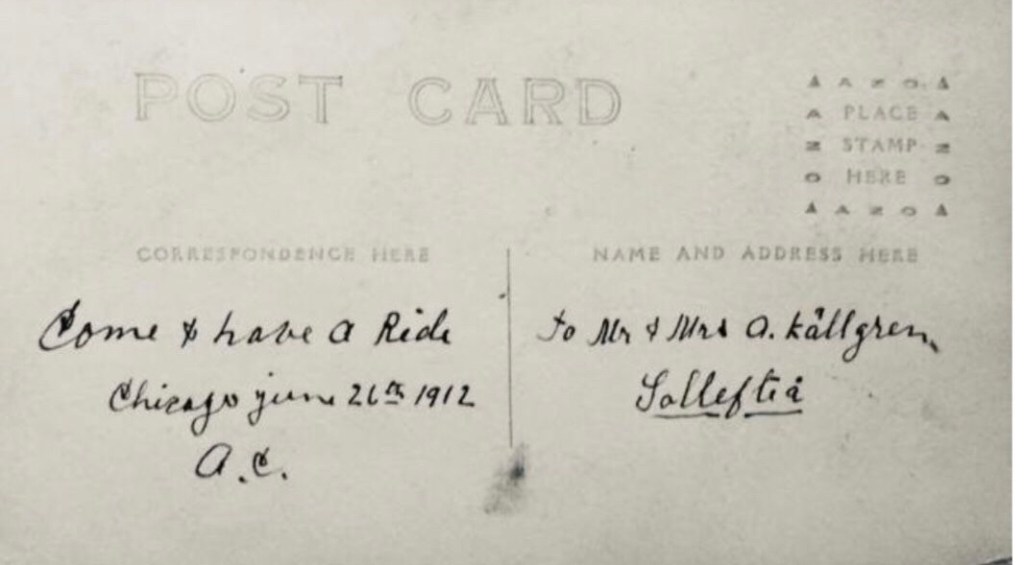 POST CARD
▲ A Z O ▲
A PLACE A
Z STAMP Z
O HERE O
▲ A Z O ▲
CORRESPONDENCE HERE
Come & have a Ride
Chicago june 26th 1912
A.C.
NAME AND ADDRESS HERE
To Mr & Mrs A. Källgren,
Sollefteå